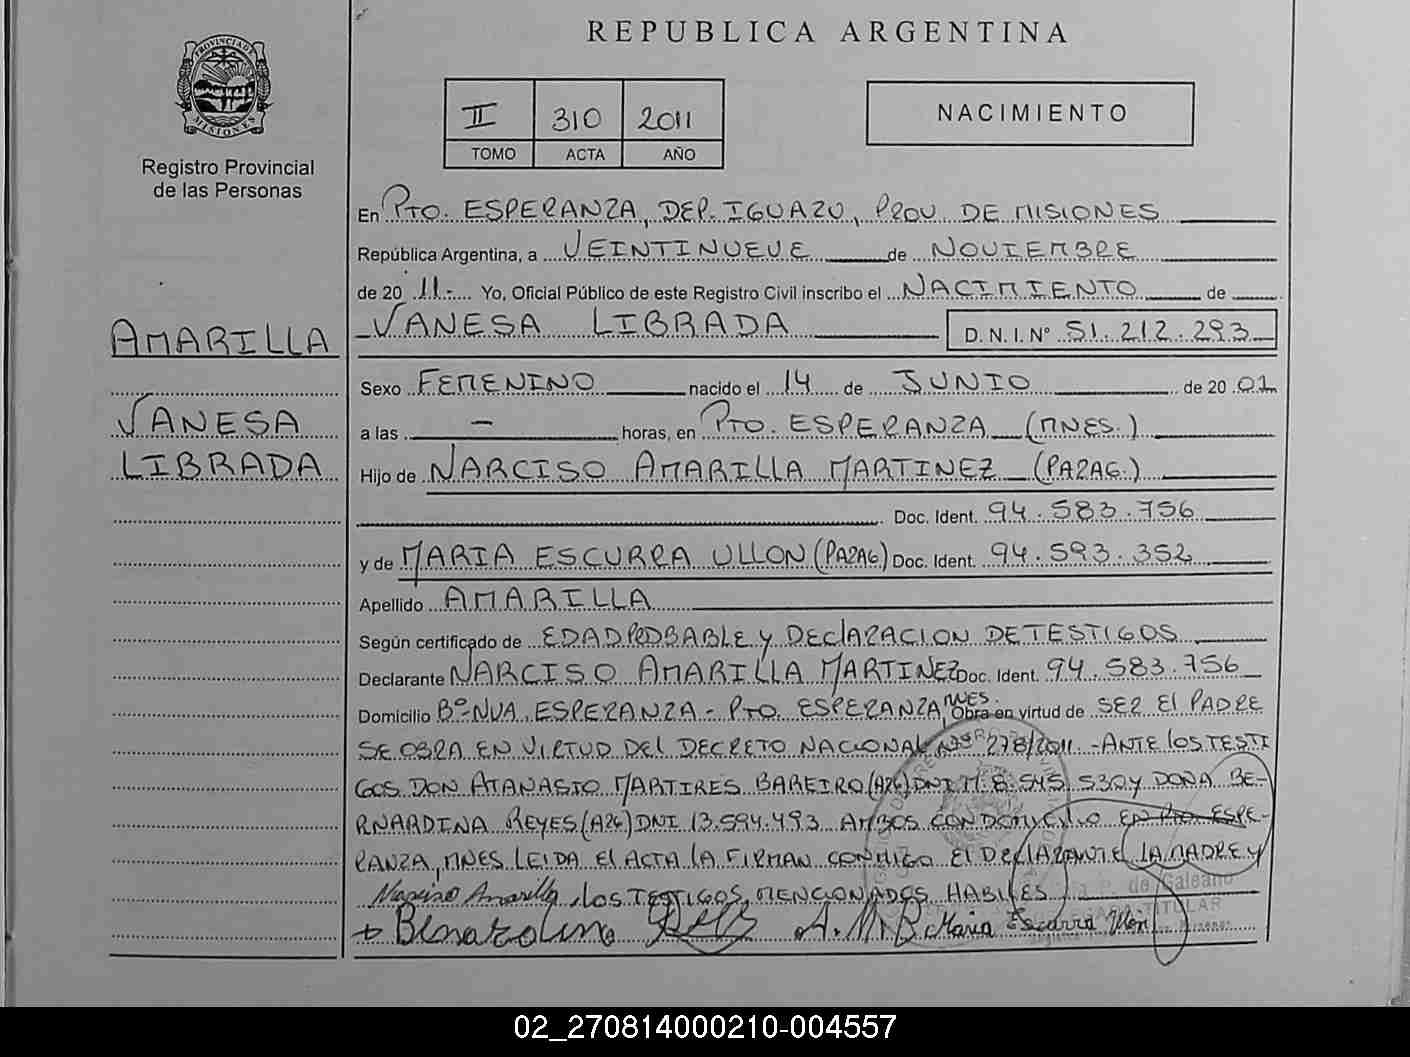 REPUBLICA ARGENTINA
PROVINCIA DE
MISIONES
Registro Provincial
de las Personas
II 310 2011
TOMO ACTA AÑO
NACIMIENTO
En PTO. ESPERANZA, DEP. IGUAZU, PROV DE MISIONES
República Argentina, a VEINTINUEVE de NOVIEMBRE
de 20 11.- Yo, Oficial Público de este Registro Civil inscribo el NACIMIENTO de
VANESA LIBRADA D.N.I.Nº 51.212.293
AMARILLA
VANESA
LIBRADA
Sexo FEMENINO nacido el 14 de JUNIO de 20 01
a las - horas, en PTO. ESPERANZA (MNES.)
Hijo de NARCISO AMARILLA MARTINEZ (PARAG.)
Doc. Ident. 94.583.756
y de MARIA ESCURRA ULLON (PARAG) Doc. Ident. 94.593.352
Apellido AMARILLA
Según certificado de EDAD PROBABLE Y DEClARACION DE TESTIGOS
Declarante NARCISO AMARILLA MARTINEZ Doc. Ident. 94.583.756
Domicilio Bº NVA. ESPERANZA - PTO. ESPERANZA, MNES. Obra en virtud de SER El PADRE
SE OBRA EN VIRTUD DEl DECRETO NACIONAL Nº 278/2011 - ANTE lOS TESTI
GOS DON ATANASIO MARTIRES BAREIRO (ARG) DNI M. 8.545.530 Y DOÑA BE-
RNARDINA REYES (ARG) DNI 13.594.493 AMBOS CON DOMICILIO EN PTO. ESPE-
RANZA, MNES LEIDA El ACTA lA FIRMAN CONMIGO El DEClARANTE, LA MADRE Y
Narciso Amarilla, lOS TESTIGOS MENCIONADOS HABILES
P. de Galeano
TITULAR
A.M.B. Maria Escurra Ullon
02_270814000210-004557